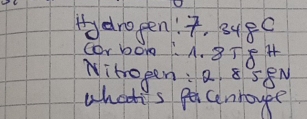 Hydrogen: 7.34gC
Carbon: 1.85gH
Nitrogen: 2.85gN
what's percentage